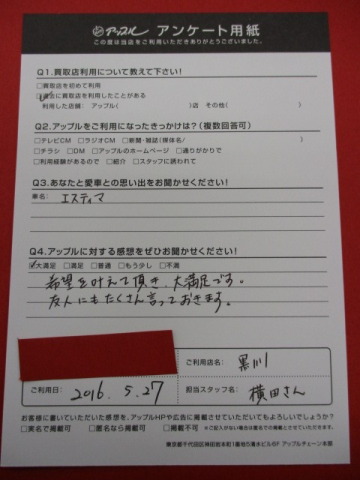 アップル アンケート用紙
この度は当店をご利用いただきありがとうございました。
Q1.買取店利用について教えて下さい!
□買取店を初めて利用
☑過去に買取店を利用したことがある
利用した店舗: アップル( )店 その他( )
Q2.アップルをご利用になったきっかけは?(複数回答可)
□テレビCM □ラジオCM □新聞・雑誌(媒体名/ )
□チラシ □DM □アップルのホームページ □通りがかりで
□利用経験があるので □紹介 □スタッフに誘われて
Q3.あなたと愛車との思い出をお聞かせください!
車名: エスティマ
Q4.アップルに対する感想をぜひお聞かせください!
☑大満足 □満足 □普通 □もう少し □不満
希望を叶えて頂き、大満足です。
友人にもたくさん言っておきます。
ご利用店名: 黒川
ご利用日: 2016. 5. 27
担当スタッフ名: 横田さん
お客様に書いていただいた感想を、アップルHPや広告に掲載させていただいてもよろしいでしょうか?
□実名で掲載可 □匿名なら掲載可 □掲載不可 ※ご記入がない場合は匿名での掲載とさせていただきます。